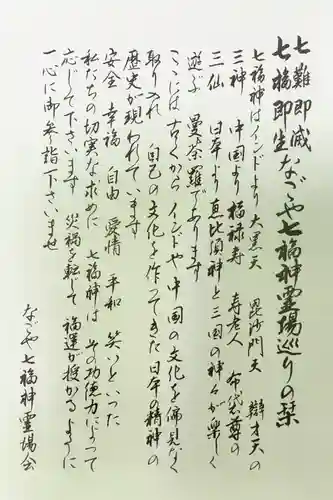 七難即滅
七福即生 なごや七福神霊場巡りの栞
七福神はインドより 大黒天 毘沙門天 辯才天の
三神 中国より 福禄寿 寿老人 布袋尊の
三仙 日本より 恵比須神と三国の神々が楽しく
遊ぶ 曼荼羅であります
ここには古くから インドや中国の文化を偏見なく
取り入れ 自己の文化を作ってきた日本の精神の
歴史が現われています
安全 幸福 自由 愛情 平和 笑いといった
私たちの切実な求めに 七福神は その功徳力によって
応じて下さいます 災禍を転じて 福運が授かるように
一心に御参詣下さいませ
なごや七福神霊場会